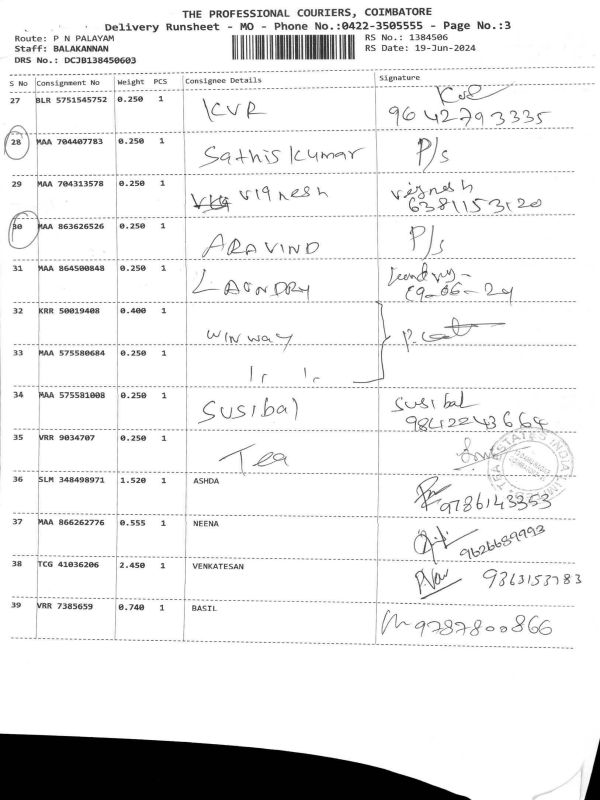 THE PROFESSIONAL COURIERS, COIMBATORE
Delivery Runsheet - MO - Phone No.:0422-3505555 - Page No.:3
Route: P N PALAYAM
RS No.: 1384506
Staff: BALAKANNAN
RS Date: 19-Jun-2024
DRS No.: DCJB138450603
S No Consignment No Weight PCS Consignee Details Signature
27 BLR 5751545752 0.250 1 KVR 9642793335
28 MAA 704407783 0.250 1 Sathiskumar P/s
29 MAA 704313578 0.250 1 vignesh vignesh
6381153120
30 MAA 863626526 0.250 1 ARAVIND P/s
31 MAA 864500848 0.250 1 LAUNDRY
19-06-24
32 KRR 50019408 0.400 1 winway
33 MAA 575580684 0.250 1
34 MAA 575581008 0.250 1 Susibal Susibal
9842243664
35 VRR 9034707 0.250 1 Tea
36 SLM 348498971 1.520 1 ASHDA 9786143353
37 MAA 866262776 0.555 1 NEENA 9626689993
38 TCG 41036206 2.450 1 VENKATESAN 9363153783
39 VRR 7385659 0.740 1 BASIL 9787800866